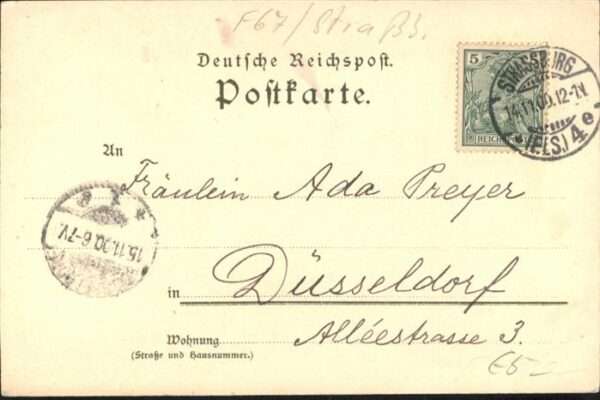 F67/Straßb.
Deutsche Reichspost.
Postkarte.
5
REICHSPOST
STRASSBURG
14.11.00.12-1N.
(ELS.) 4 e
An
Fräulein Ada Preyer
15.11.00.6-7V.
in Düsseldorf
Wohnung Alléestrasse 3.
(Straße und Hausnummer.)
€5-